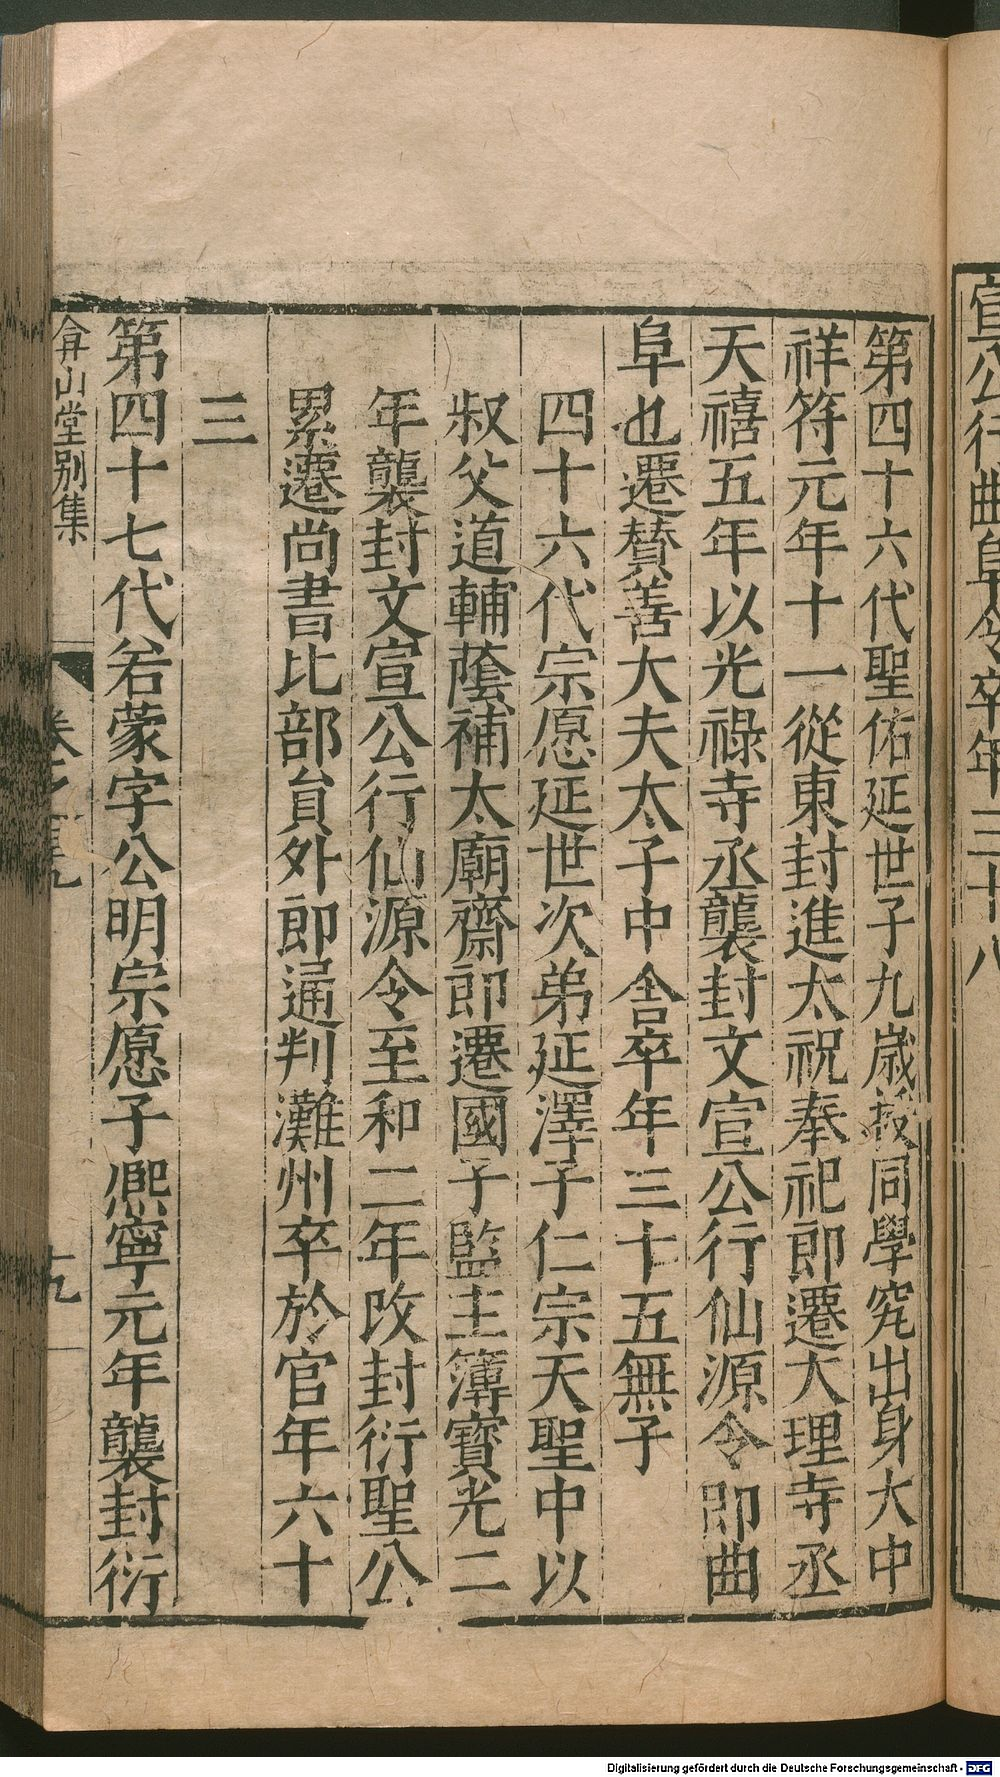 宣公行曲阜令卒年三十八
第四十六代聖佑延世子九歲授同學究出身大中
祥符元年十一從東封進太祝奉祀即遷大理寺丞
天禧五年以光祿寺丞襲封文宣公行仙源令即曲
阜也遷贊善大夫太子中舍卒年三十五無子
四十六代宗愿延世次弟延澤子仁宗天聖中以
叔父道輔蔭補太廟齋郎遷國子監主簿寶光二
年襲封文宣公行仙源令至和二年改封衍聖公
累遷尚書比部員外郎通判濰州卒於官年六十
三
第四十七代若蒙字公明宗愿子熙寧元年襲封衍
弇山堂別集
卷之
十九
Digitalisierung gefördert durch die Deutsche Forschungsgemeinschaft - DFG